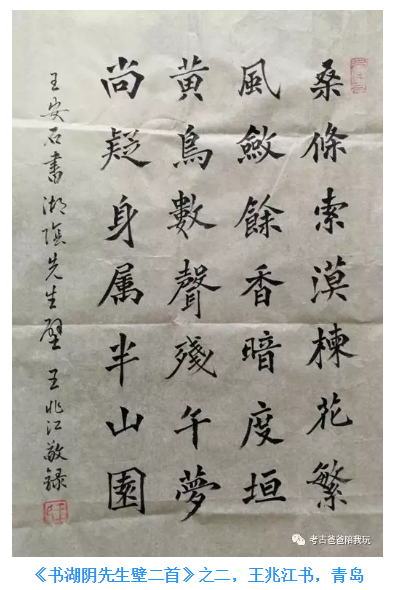 桑條索漠楝花繁
風斂餘香暗度垣
黄鳥數聲殘午夢
尚疑身属半山園
王安石書湖陰先生壁 王兆江敬録
考古爸爸陪我玩
《书湖阴先生壁二首》之二，王兆江书，青岛